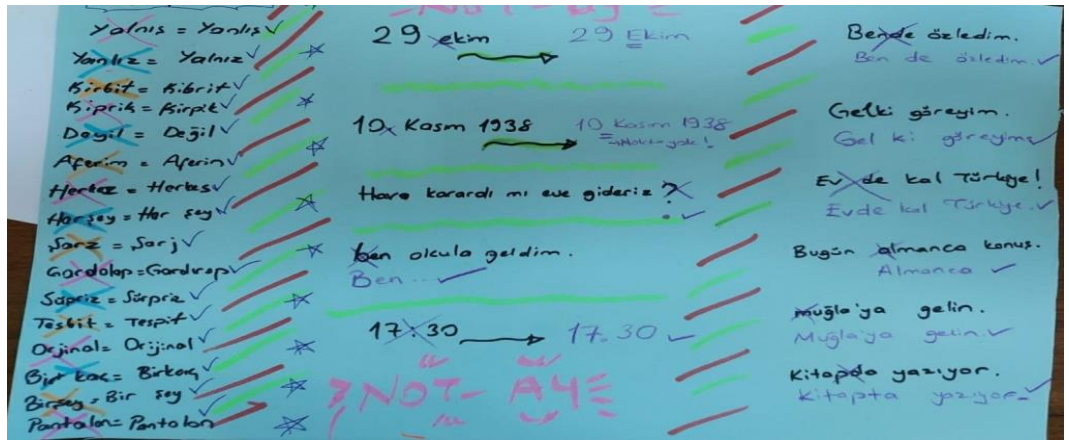 Yalnış = Yanlış
Yanlız = Yalnız
Kirbit = Kibrit
Kiprik = Kirpik
Deyil = Değil
Aferim = Aferin
Herkez = Herkes
Herşey = Her şey
Şarz = Şarj
Gardolap = Gardırop
Süpriz = Sürpriz
Tesbit = Tespit
Orjinal = Orijinal
Bir kaç = Birkaç
Birşey = Bir şey
Pantalon = Pantolon
NOT - A4
29 ekim 29 Ekim
10. Kasım 1938 10 Kasım 1938
Nokta yok!
Hava karardı mı eve gideriz ?
.
ben okula geldim.
Ben...
17:30 17.30
NOT - A4
Bende özledim.
Ben de özledim.
Gelki göreyim.
Gel ki göreyim.
Ev de kal Türkiye!
Evde kal Türkiye.
Bugün almanca konuş.
Almanca
muğla'ya gelin.
Muğla'ya gelin.
Kitapda yazıyor.
Kitapta yazıyor.